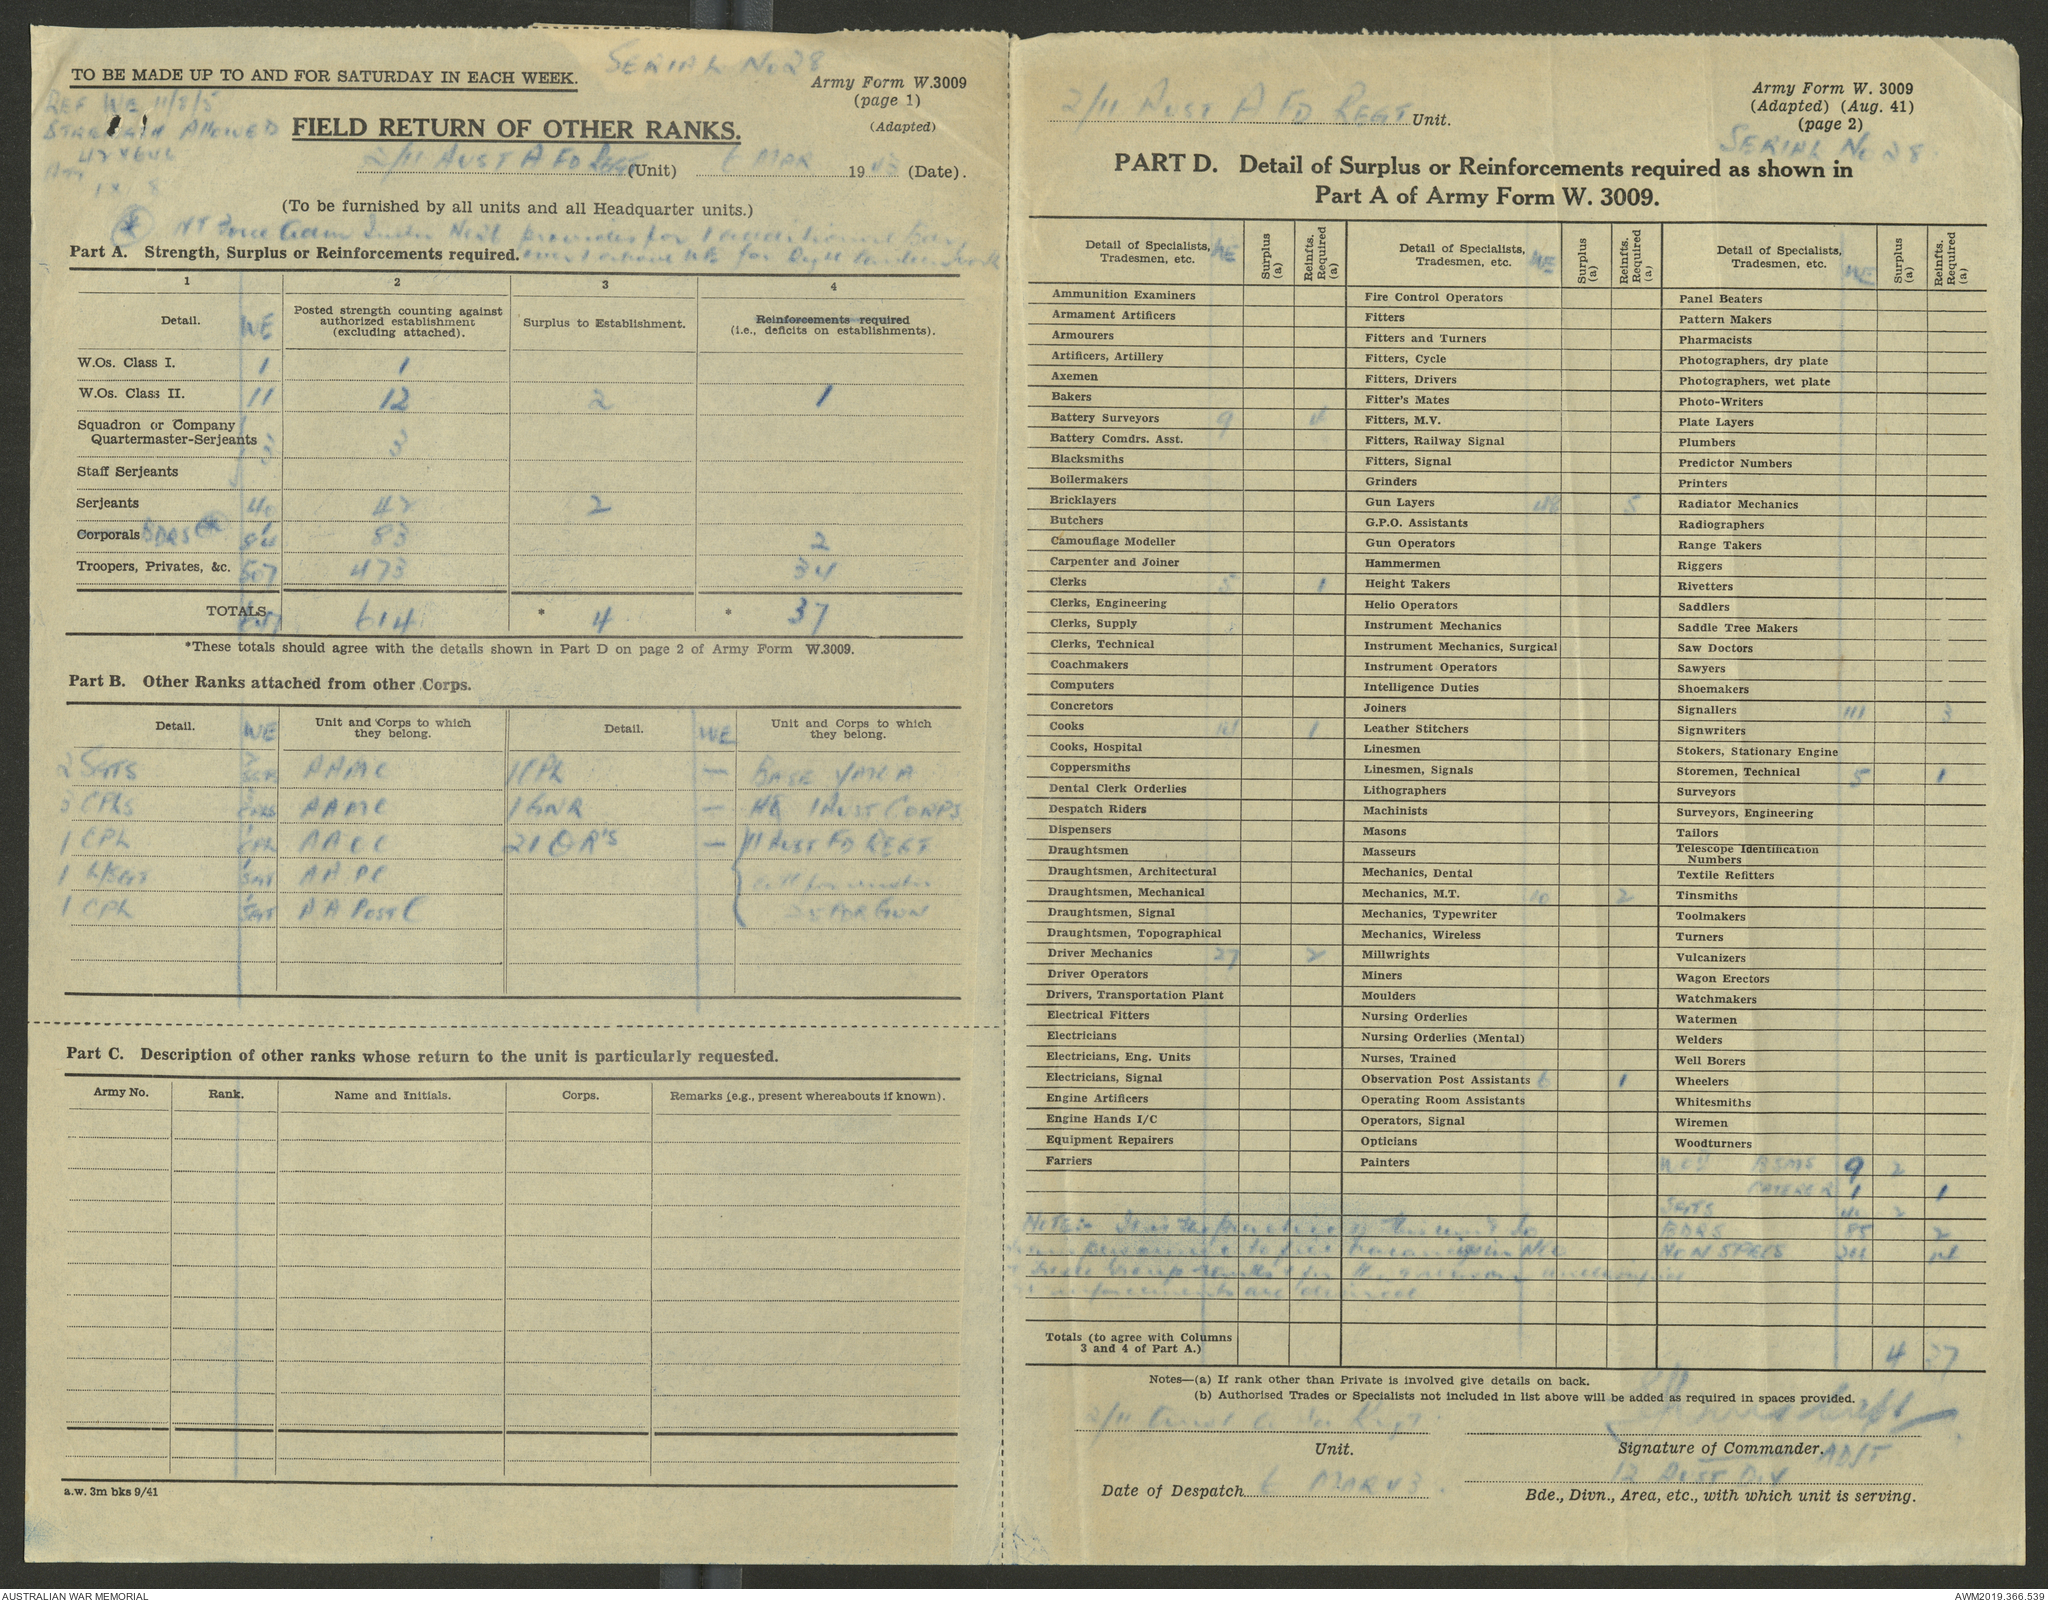 SERIAL No 28
TO BE MADE UP TO AND FOR SATURDAY IN EACH WEEK.
Army Form W.3009
(page 1)
(Adapted)
REF WE 11/8/5
STRENGTH ALLOWED
FIELD RETURN OF OTHER RANKS.
2/11 AUST A FD REGT (Unit) 6 MAR 1943 (Date).
(To be furnished by all units and all Headquarter units.)
NT Force provides for 1 additional
Part A. Strength, Surplus or Reinforcements required.
1 2 3 4
Detail. WE Posted strength counting against authorized establishment (excluding attached). Surplus to Establishment. Reinforcements required (i.e., deficits on establishments).
W.Os. Class I. 1 1
W.Os. Class II. 11 12 2 1
Squadron or Company Quartermaster-Serjeants 3 3
Staff Serjeants
Serjeants 40 42 2
Corporals BDRS 83 2
Troopers, Privates, &c. 507 473 34
TOTALS 614 * 4 * 37
*These totals should agree with the details shown in Part D on page 2 of Army Form W.3009.
Part B. Other Ranks attached from other Corps.
Detail. WE Unit and Corps to which they belong. Detail. WE Unit and Corps to which they belong.
2 SGTS 2 SGTS AAMC 1 CPL — BASE
3 CPLS 3 CPLS AAMC 1 GNR — HQ 1 AUST CORPS
1 CPL 1 CPL AACC 21 OR'S — 11 AUST FD REGT
1 L/SGT 1 SGT AAPC
1 CPL 1 SGT AA POST C 25 PDR GUN
Part C. Description of other ranks whose return to the unit is particularly requested.
Army No. Rank. Name and Initials. Corps. Remarks (e.g., present whereabouts if known).
a.w. 3m bks 9/41
2/11 AUST A FD REGT Unit.
Army Form W. 3009
(Adapted) (Aug. 41)
(page 2)
SERIAL No 28
PART D. Detail of Surplus or Reinforcements required as shown in
Part A of Army Form W. 3009.
Detail of Specialists, Tradesmen, etc. WE Surplus (a) Reinfts. Required (a)
Ammunition Examiners
Armament Artificers
Armourers
Artificers, Artillery
Axemen
Bakers
Battery Surveyors 9 4
Battery Comdrs. Asst.
Blacksmiths
Boilermakers
Bricklayers
Butchers
Camouflage Modeller
Carpenter and Joiner
Clerks 5 1
Clerks, Engineering
Clerks, Supply
Clerks, Technical
Coachmakers
Computers
Concretors
Cooks 1
Cooks, Hospital
Coppersmiths
Dental Clerk Orderlies
Despatch Riders
Dispensers
Draughtsmen
Draughtsmen, Architectural
Draughtsmen, Mechanical
Draughtsmen, Signal
Draughtsmen, Topographical
Driver Mechanics 27 2
Driver Operators
Drivers, Transportation Plant
Electrical Fitters
Electricians
Electricians, Eng. Units
Electricians, Signal
Engine Artificers
Engine Hands I/C
Equipment Repairers
Farriers
Detail of Specialists, Tradesmen, etc. WE Surplus (a) Reinfts. Required (a)
Fire Control Operators
Fitters
Fitters and Turners
Fitters, Cycle
Fitters, Drivers
Fitter's Mates
Fitters, M.V.
Fitters, Railway Signal
Fitters, Signal
Grinders
Gun Layers 48 5
G.P.O. Assistants
Gun Operators
Hammermen
Height Takers
Helio Operators
Instrument Mechanics
Instrument Mechanics, Surgical
Instrument Operators
Intelligence Duties
Joiners
Leather Stitchers
Linesmen
Linesmen, Signals
Lithographers
Machinists
Masons
Masseurs
Mechanics, Dental
Mechanics, M.T. 10 2
Mechanics, Typewriter
Mechanics, Wireless
Millwrights
Miners
Moulders
Nursing Orderlies
Nursing Orderlies (Mental)
Nurses, Trained
Observation Post Assistants 6 1
Operating Room Assistants
Operators, Signal
Opticians
Painters
Detail of Specialists, Tradesmen, etc. WE Surplus (a) Reinfts. Required (a)
Panel Beaters
Pattern Makers
Pharmacists
Photographers, dry plate
Photographers, wet plate
Photo-Writers
Plate Layers
Plumbers
Predictor Numbers
Printers
Radiator Mechanics
Radiographers
Range Takers
Riggers
Rivetters
Saddlers
Saddle Tree Makers
Saw Doctors
Sawyers
Shoemakers
Signallers 111 3
Signwriters
Stokers, Stationary Engine
Storemen, Technical 5 1
Surveyors
Surveyors, Engineering
Tailors
Telescope Identification Numbers
Textile Refitters
Tinsmiths
Toolmakers
Turners
Vulcanizers
Wagon Erectors
Watchmakers
Watermen
Welders
Well Borers
Wheelers
Whitesmiths
Wiremen
Woodturners
BSMS 9 2
CATERER 1 1
SGTS 40 2
BDRS 85 2
NON SPECS 14
NOTE:- It is the practice of this unit to
personnel to fill vacancies in
reinforcements are desired
Totals (to agree with Columns 3 and 4 of Part A.) 4 37
Notes—(a) If rank other than Private is involved give details on back.
(b) Authorised Trades or Specialists not included in list above will be added as required in spaces provided.
2/11 Aust A Fd Regt
Unit.
Capt
Signature of Commander. ADJT
12 AUST DIV
Date of Despatch 6 MAR 43.
Bde., Divn., Area, etc., with which unit is serving.
AUSTRALIAN WAR MEMORIAL
AWM2019.366.539